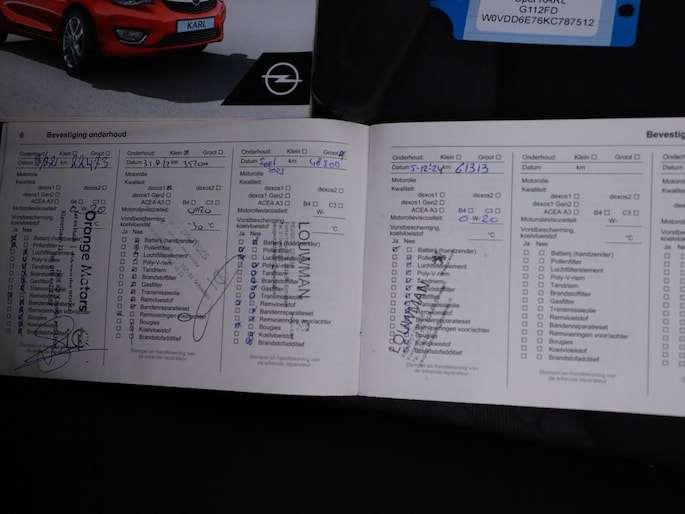 KARL
Opel KARL
G112FD
W0VDD6E76KC787512
6 Bevestiging onderhoud
Onderhoud: Klein Groot
Datum km 22473
Motorolie
Kwaliteit:
dexos1 dexos2
dexos1 Gen2
ACEA A3 B4 C3
Motorolieviscositeit: 0 W- 20
Vorstbescherming,
koelvloeistof: °C
Ja Nee
Batterij (handzender)
Pollenfilter
Luchtfilterelement
Poly-V-riem
Tandriem
Brandstoffilter
Gasfilter
Transmissieolie
Remvloeistof
Bandenreparatieset
Remvoeringen
Bougies
Koelvloeistof
Brandstofadditief
Stempel en handtekening van
de erkende reparateur
Orange Motors
Onderhoud: Klein Groot
Datum km
Motorolie
Kwaliteit:
dexos1 dexos2
dexos1 Gen2
ACEA A3 B4 C3
Motorolieviscositeit:
Vorstbescherming,
koelvloeistof: -30 °C
Ja Nee
Batterij (handzender)
Pollenfilter
Luchtfilterelement
Poly-V-riem
Tandriem
Brandstoffilter
Gasfilter
Transmissieolie
Remvloeistof
Bandenreparatieset
Remvoeringen voor/achter
Bougies
Koelvloeistof
Brandstofadditief
Stempel en handtekening van
de erkende reparateur
Onderhoud: Klein Groot
Datum Sept 2023 km 48300
Motorolie
Kwaliteit:
dexos1 dexos2
dexos1 Gen2
ACEA A3 B4 C3
Motorolieviscositeit: W-
Vorstbescherming,
koelvloeistof: °C
Ja Nee
Batterij (handzender)
Pollenfilter
Luchtfilterelement
Poly-V-riem
Tandriem
Brandstoffilter
Gasfilter
Transmissieolie
Remvloeistof
Bandenreparatieset
Remvoeringen voor/achter
Bougies
Koelvloeistof
Brandstofadditief
Stempel en handtekening van
de erkende reparateur
LOUWMAN
Bevestig
Onderhoud: Klein Groot
Datum 5-12-24 km 61313
Motorolie
Kwaliteit:
dexos1 dexos2
dexos1 Gen2
ACEA A3 B4 C3
Motorolieviscositeit: 0 W- 20
Vorstbescherming,
koelvloeistof: °C
Ja Nee
Batterij (handzender)
Pollenfilter
Luchtfilterelement
Poly-V-riem
Tandriem
Brandstoffilter
Gasfilter
Transmissieolie
Remvloeistof
Bandenreparatieset
Remvoeringen voor/achter
Bougies
Koelvloeistof
Brandstofadditief
Stempel en handtekening van
de erkende reparateur
LOUWMAN
Onderhoud: Klein Groot
Datum km
Motorolie
Kwaliteit:
dexos1 dexos2
dexos1 Gen2
ACEA A3 B4 C3
Motorolieviscositeit: W-
Vorstbescherming,
koelvloeistof: °C
Ja Nee
Batterij (handzender)
Pollenfilter
Luchtfilterelement
Poly-V-riem
Tandriem
Brandstoffilter
Gasfilter
Transmissieolie
Remvloeistof
Bandenreparatieset
Remvoeringen voor/achter
Bougies
Koelvloeistof
Brandstofadditief
Stempel en handtekening van
de erkende reparateur
Onderh
Datum
Motorolie
Kwaliteit: